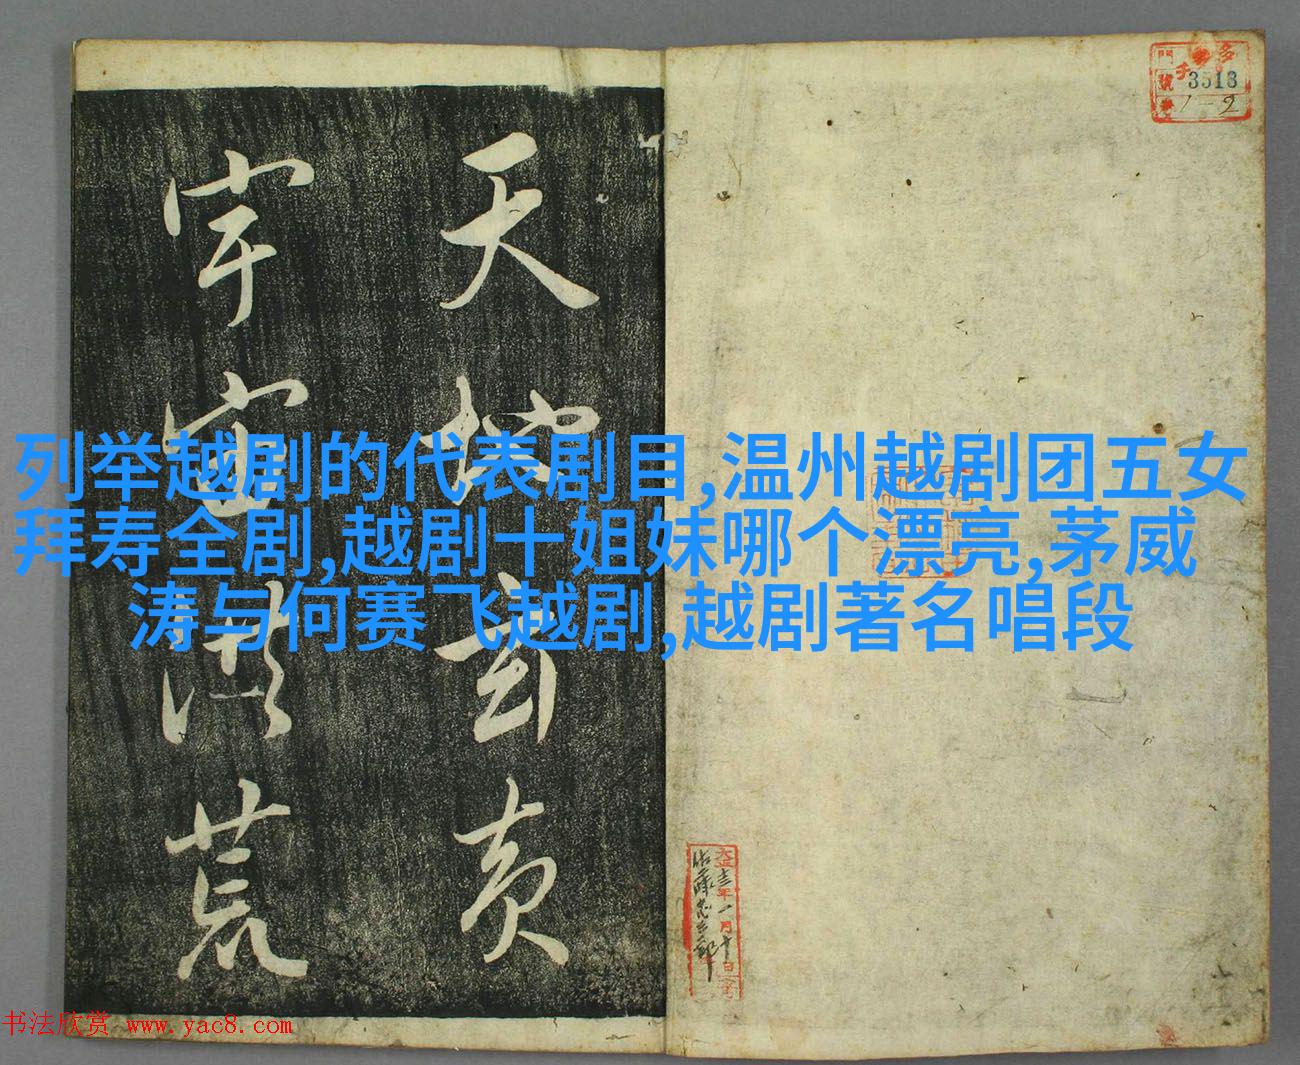 天地玄黄
宇宙洪荒
列举越剧的代表剧目,温州越剧团五女
拜寿全剧,越剧十姐妹哪个漂亮,茅威
涛与何赛飞越剧,越剧著名唱段
3513
1-2
大正三年一月十日
书法欣赏 www.yac8.com